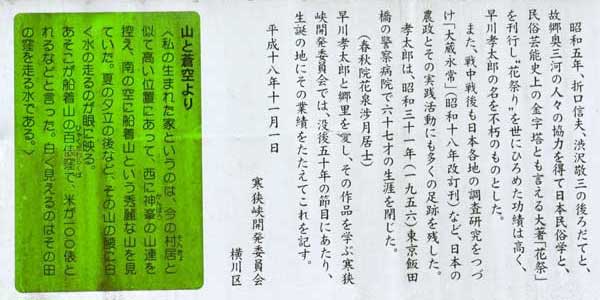 昭和五年、折口信夫、渋沢敬三の後ろだてと、
故郷奥三河の人々の協力を得て日本民俗学と、
民俗芸能史上の金字塔とも言える大著「花祭」
を刊行し〝花祭り〟を世にひろめた功績は高く、
早川孝太郎の名を不朽のものとした。
また、戦中戦後も日本各地の調査研究をつづ
け「大蔵永常」（昭和十八年改訂刊）など、日本の
農政とその実践活動にも多くの足跡を残した。
孝太郎は、昭和三十一年（一九五六）東京飯田
橋の警察病院で六十七才の生涯を閉じた。
（春秋院花泉渉月居士）
早川孝太郎と郷里を愛し、その作品を学ぶ寒狭
峡開発委員会では、没後五十年の節目にあたり、
生誕の地にその業績をたたえてこれを記す。
平成十八年十一月一日
寒狭峡開発委員会
横川区
山と蒼空より
〈私の生まれた家というのは、今の村居と
似て高い位置にあって、西に神峯の山連を
控え、南の空に船着山という秀麗な山を見
ていた。夏の夕立の後など、その山の腰に白
く水の走るのが眼に映る。
あそこが船着山の百俵窪で、米が一〇〇俵と
れるなどと言った。白く見えるのはその田
の窪を走る水である。〉